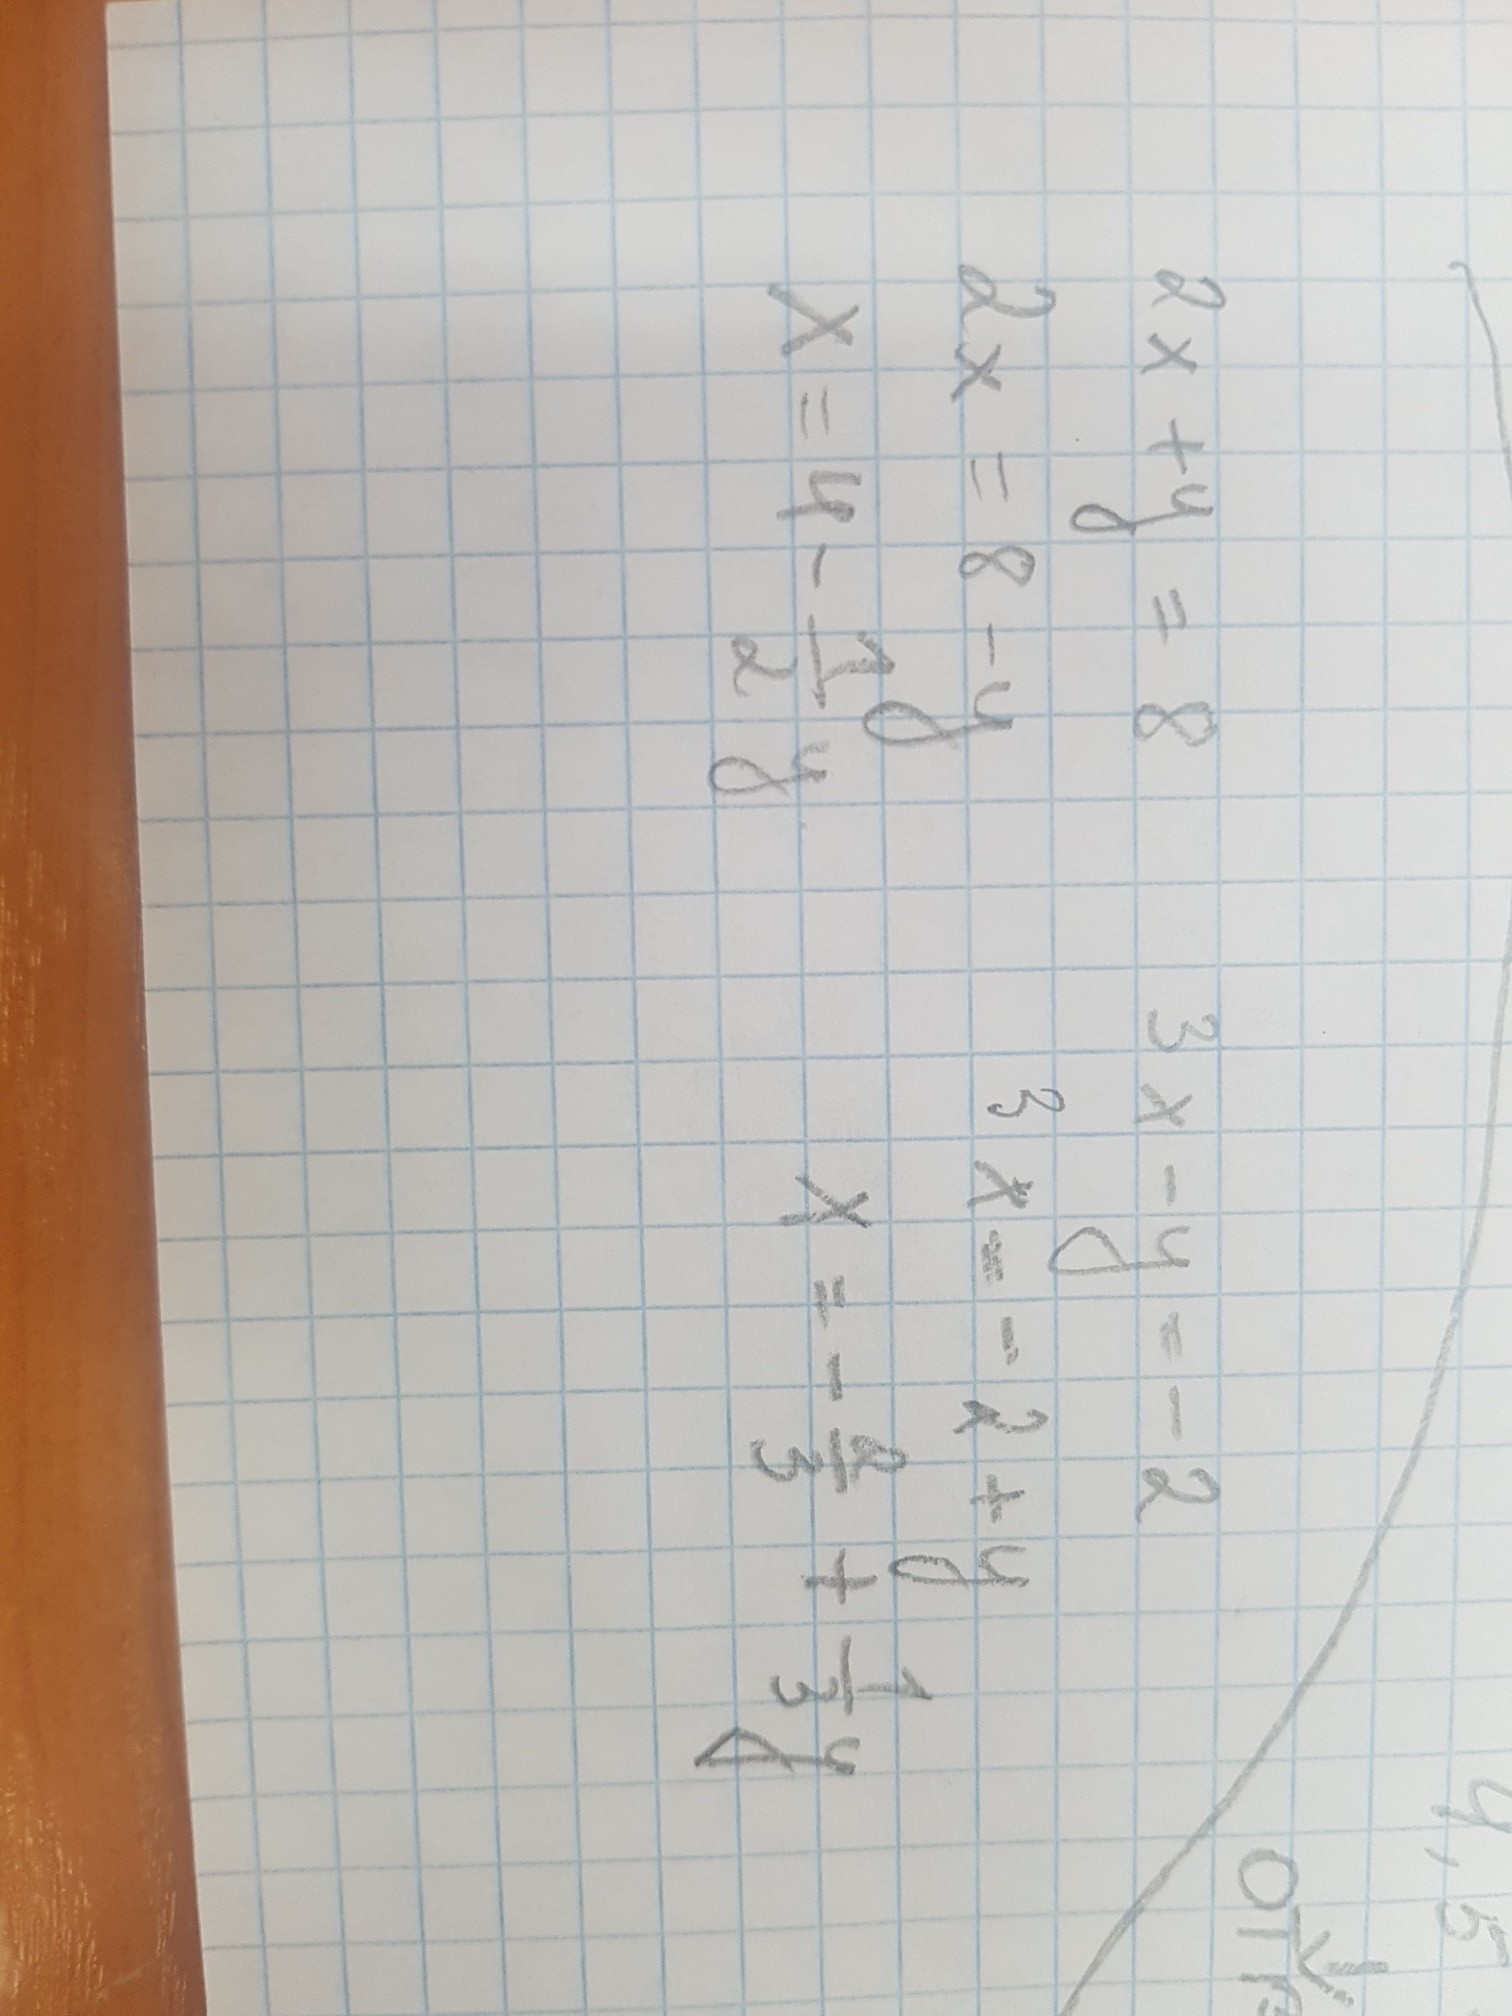 4,5
2x + y = 8    3x - y = -2
2x = 8 - y    3x = -2 + y
x = 4 - 1/2 y    x = - 2/3 + 1/3 y